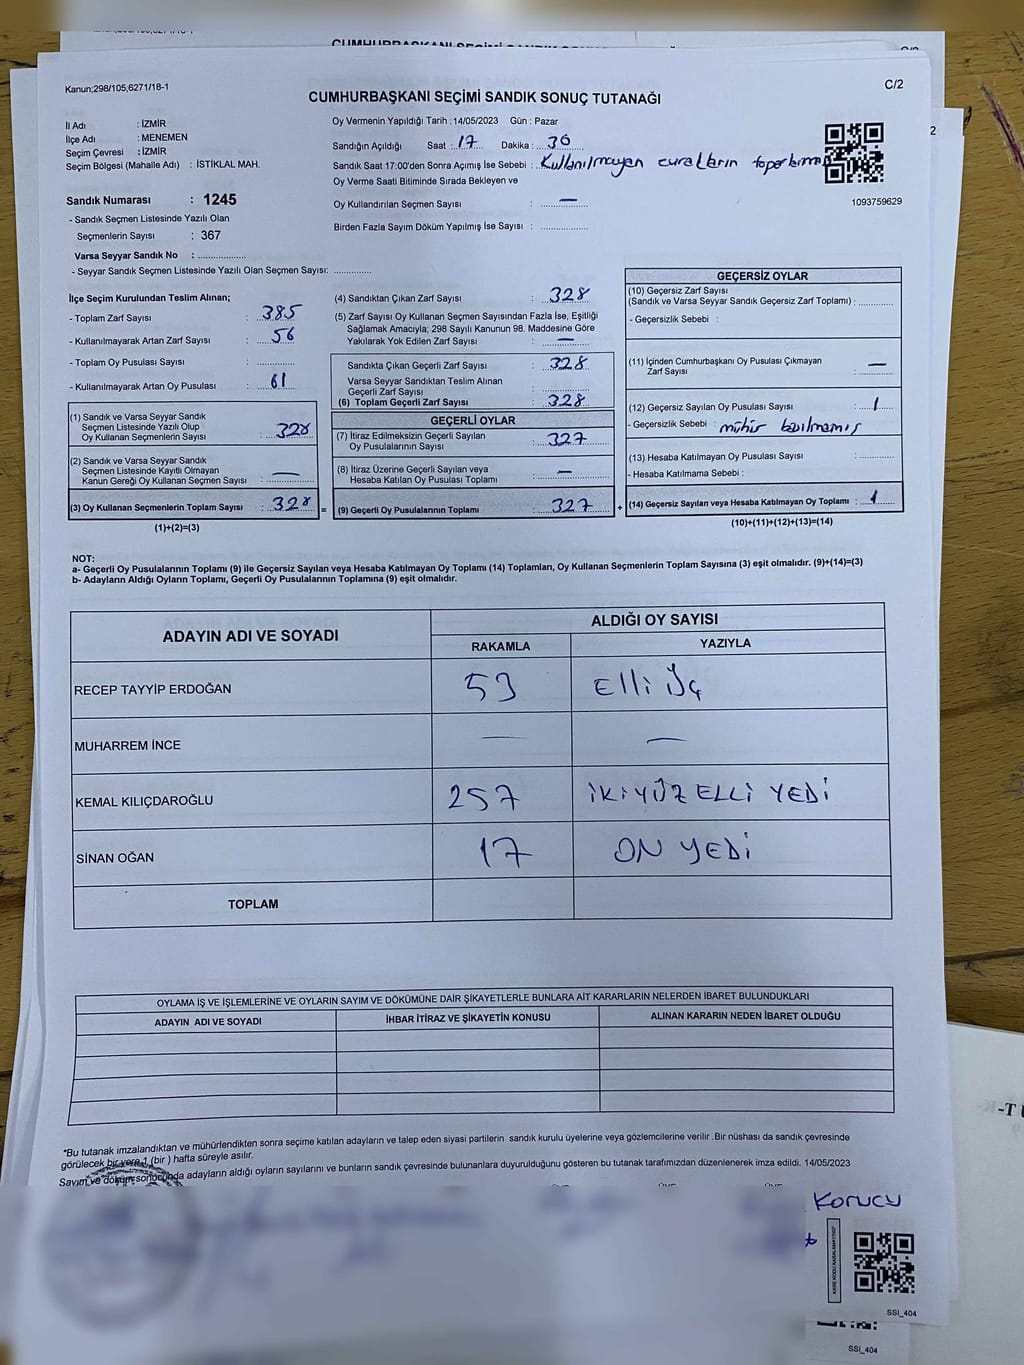 Kanun;298/105;6271/18-1
C/2
CUMHURBAŞKANI SEÇİMİ SANDIK SONUÇ TUTANAĞI
İl Adı : İZMİR
İlçe Adı : MENEMEN
Seçim Çevresi : İZMİR
Seçim Bölgesi (Mahalle Adı) : İSTİKLAL MAH.
Oy Vermenin Yapıldığı Tarih :14/05/2023 Gün : Pazar
Sandığın Açıldığı Saat : 17 Dakika : 30
Sandık Saat 17:00'den Sonra Açımış İse Sebebi : Kullanılmayan
Oy Verme Saati Bitiminde Sırada Bekleyen ve
Oy Kullandırılan Seçmen Sayısı : —
Birden Fazla Sayım Döküm Yapılmış İse Sayısı :
1093759629
Sandık Numarası : 1245
- Sandık Seçmen Listesinde Yazılı Olan
Seçmenlerin Sayısı : 367
Varsa Seyyar Sandık No :
- Seyyar Sandık Seçmen Listesinde Yazılı Olan Seçmen Sayısı:
İlçe Seçim Kurulundan Teslim Alınan;
- Toplam Zarf Sayısı : 385
- Kullanılmayarak Artan Zarf Sayısı : 56
- Toplam Oy Pusulası Sayısı :
- Kullanılmayarak Artan Oy Pusulası : 61
(1) Sandık ve Varsa Seyyar Sandık
Seçmen Listesinde Yazılı Olup
Oy Kullanan Seçmenlerin Sayısı : 328
(2) Sandık ve Varsa Seyyar Sandık
Seçmen Listesinde Kayıtlı Olmayan
Kanun Gereği Oy Kullanan Seçmen Sayısı : —
(3) Oy Kullanan Seçmenlerin Toplam Sayısı : 328 =
(1)+(2)=(3)
(4) Sandıktan Çıkan Zarf Sayısı : 328
(5) Zarf Sayısı Oy Kullanan Seçmen Sayısından Fazla İse, Eşitliği
Sağlamak Amacıyla; 298 Sayılı Kanunun 98. Maddesine Göre
Yakılarak Yok Edilen Zarf Sayısı : —
Sandıkta Çıkan Geçerli Zarf Sayısı : 328
Varsa Seyyar Sandıktan Teslim Alınan
Geçerli Zarf Sayısı :
(6) Toplam Geçerli Zarf Sayısı : 328
GEÇERLİ OYLAR
(7) İtiraz Edilmeksizin Geçerli Sayılan
Oy Pusulalarının Sayısı : 327
(8) İtiraz Üzerine Geçerli Sayılan veya
Hesaba Katılan Oy Pusulası Toplamı : —
(9) Geçerli Oy Pusulalarının Toplamı : 327 +
GEÇERSİZ OYLAR
(10) Geçersiz Zarf Sayısı
(Sandık ve Varsa Seyyar Sandık Geçersiz Zarf Toplamı) :
- Geçersizlik Sebebi :
(11) İçinden Cumhurbaşkanı Oy Pusulası Çıkmayan
Zarf Sayısı : —
(12) Geçersiz Sayılan Oy Pusulası Sayısı : 1
- Geçersizlik Sebebi : mühür basılmamış
(13) Hesaba Katılmayan Oy Pusulası Sayısı :
- Hesaba Katılmama Sebebi :
(14) Geçersiz Sayılan veya Hesaba Katılmayan Oy Toplamı : 1
(10)+(11)+(12)+(13)=(14)
NOT:
a- Geçerli Oy Pusulalarının Toplamı (9) ile Geçersiz Sayılan veya Hesaba Katılmayan Oy Toplamı (14) Toplamları, Oy Kullanan Seçmenlerin Toplam Sayısına (3) eşit olmalıdır. (9)+(14)=(3)
b- Adayların Aldığı Oyların Toplamı, Geçerli Oy Pusulalarının Toplamına (9) eşit olmalıdır.
ADAYIN ADI VE SOYADI
ALDIĞI OY SAYISI
RAKAMLA YAZIYLA
RECEP TAYYİP ERDOĞAN 53 Elli Üç
MUHARREM İNCE — —
KEMAL KILIÇDAROĞLU 257 İKİYÜZ ELLİ YEDİ
SİNAN OĞAN 17 ON YEDİ
TOPLAM
OYLAMA İŞ VE İŞLEMLERİNE VE OYLARIN SAYIM VE DÖKÜMÜNE DAİR ŞİKAYETLERLE BUNLARA AİT KARARLARIN NELERDEN İBARET BULUNDUKLARI
ADAYIN ADI VE SOYADI İHBAR İTİRAZ VE ŞİKAYETİN KONUSU ALINAN KARARIN NEDEN İBARET OLDUĞU
*Bu tutanak imzalandıktan ve mühürlendikten sonra seçime katılan adayların ve talep eden siyasi partilerin sandık kurulu üyelerine veya gözlemcilerine verilir .Bir nüshası da sandık çevresinde
görülecek bir yere 1 (bir ) hafta süreyle asılır.
Sayım ve döküm sonucunda adayların aldığı oyların sayılarını ve bunların sandık çevresinde bulunanlara duyurulduğunu gösteren bu tutanak tarafımızdan düzenlenerek imza edildi. 14/05/2023
Korucu
SSI_404
SSI_404